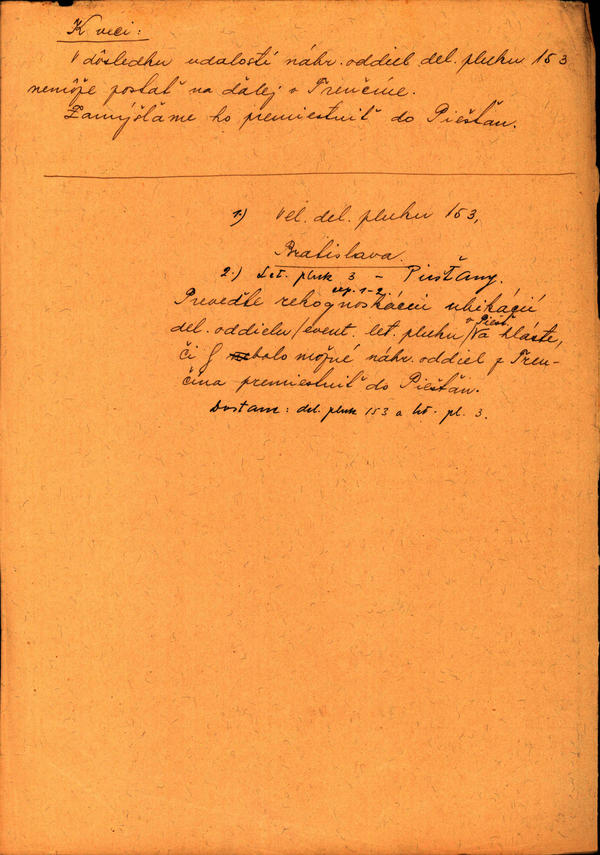 K veci:
V dôsledku udalostí náhr. oddiel del. pluku 153
nemôže postať na ďalej v Trenčíne.
Zamýšľame ho premiestniť do Piešťan.
1.) Vel. del. pluku 153,
Bratislava.
2.) Let. pluk 3 – Piešťany.
Preveďte rekognoskáciu ubikácií
del. oddielu/event. let. pluku v Piešť./ a hláste,
či by bolo možné náhr. oddiel z Tren-
čína premiestniť do Piešťan.
Dostane: del. pluk 153 a let. pl. 3.